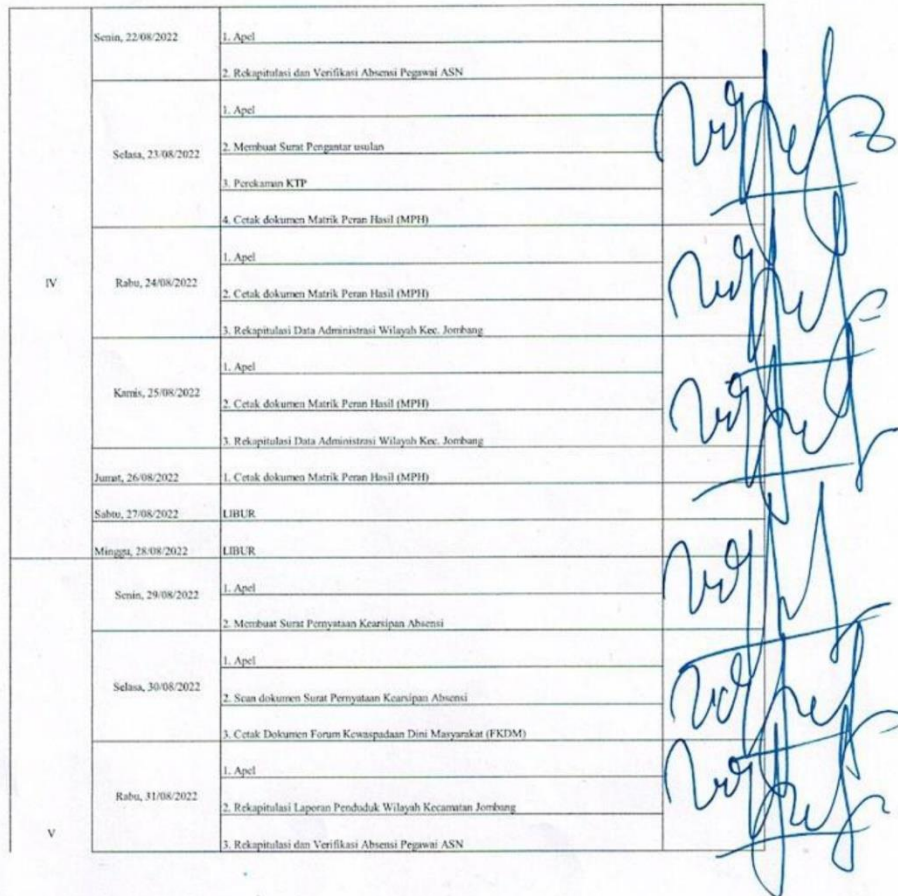 IV
Senin, 22/08/2022
1. Apel
2. Rekapitulasi dan Verifikasi Absensi Pegawai ASN
Selasa, 23/08/2022
1. Apel
2. Membuat Surat Pengantar usulan
3. Perekaman KTP
4. Cetak dokumen Matrik Peran Hasil (MPH)
Rabu, 24/08/2022
1. Apel
2. Cetak dokumen Matrik Peran Hasil (MPH)
3. Rekapitulasi Data Administrasi Wilayah Kec. Jombang
Kamis, 25/08/2022
1. Apel
2. Cetak dokumen Matrik Peran Hasil (MPH)
3. Rekapitulasi Data Administrasi Wilayah Kec. Jombang
Jumat, 26/08/2022
1. Cetak dokumen Matrik Peran Hasil (MPH)
Sabtu, 27/08/2022
LIBUR
Minggu, 28/08/2022
LIBUR
V
Senin, 29/08/2022
1. Apel
2. Membuat Surat Pernyataan Kearsipan Absensi
Selasa, 30/08/2022
1. Apel
2. Scan dokumen Surat Pernyataan Kearsipan Absensi
3. Cetak Dokumen Forum Kewaspadaan Dini Masyarakat (FKDM)
Rabu, 31/08/2022
1. Apel
2. Rekapitulasi Laporan Penduduk Wilayah Kecamatan Jombang
3. Rekapitulasi dan Verifikasi Absensi Pegawai ASN